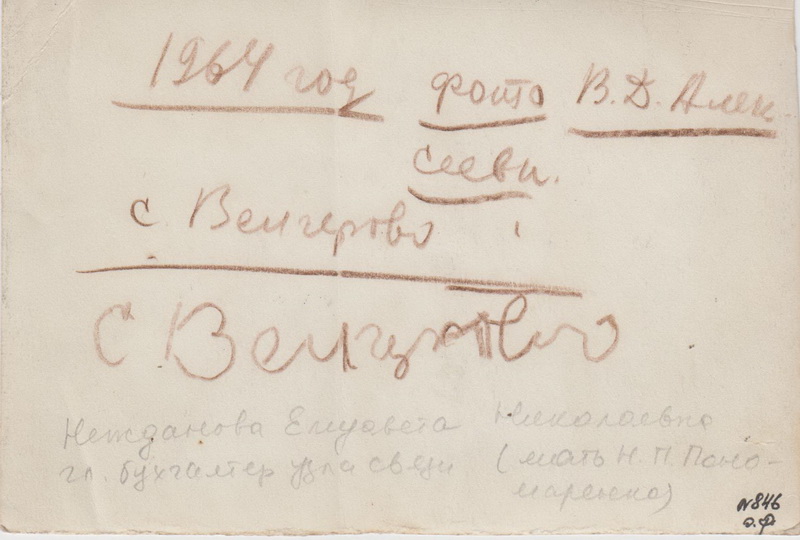 1964 год фото В.Д. Алек
сеевн.
с Венгерово
С Венгерово
Нежданова Елизавета Николаевна
гл. бухгалтер узла связи (мать Н.П. Поно-
маренко)
№846
о.ф